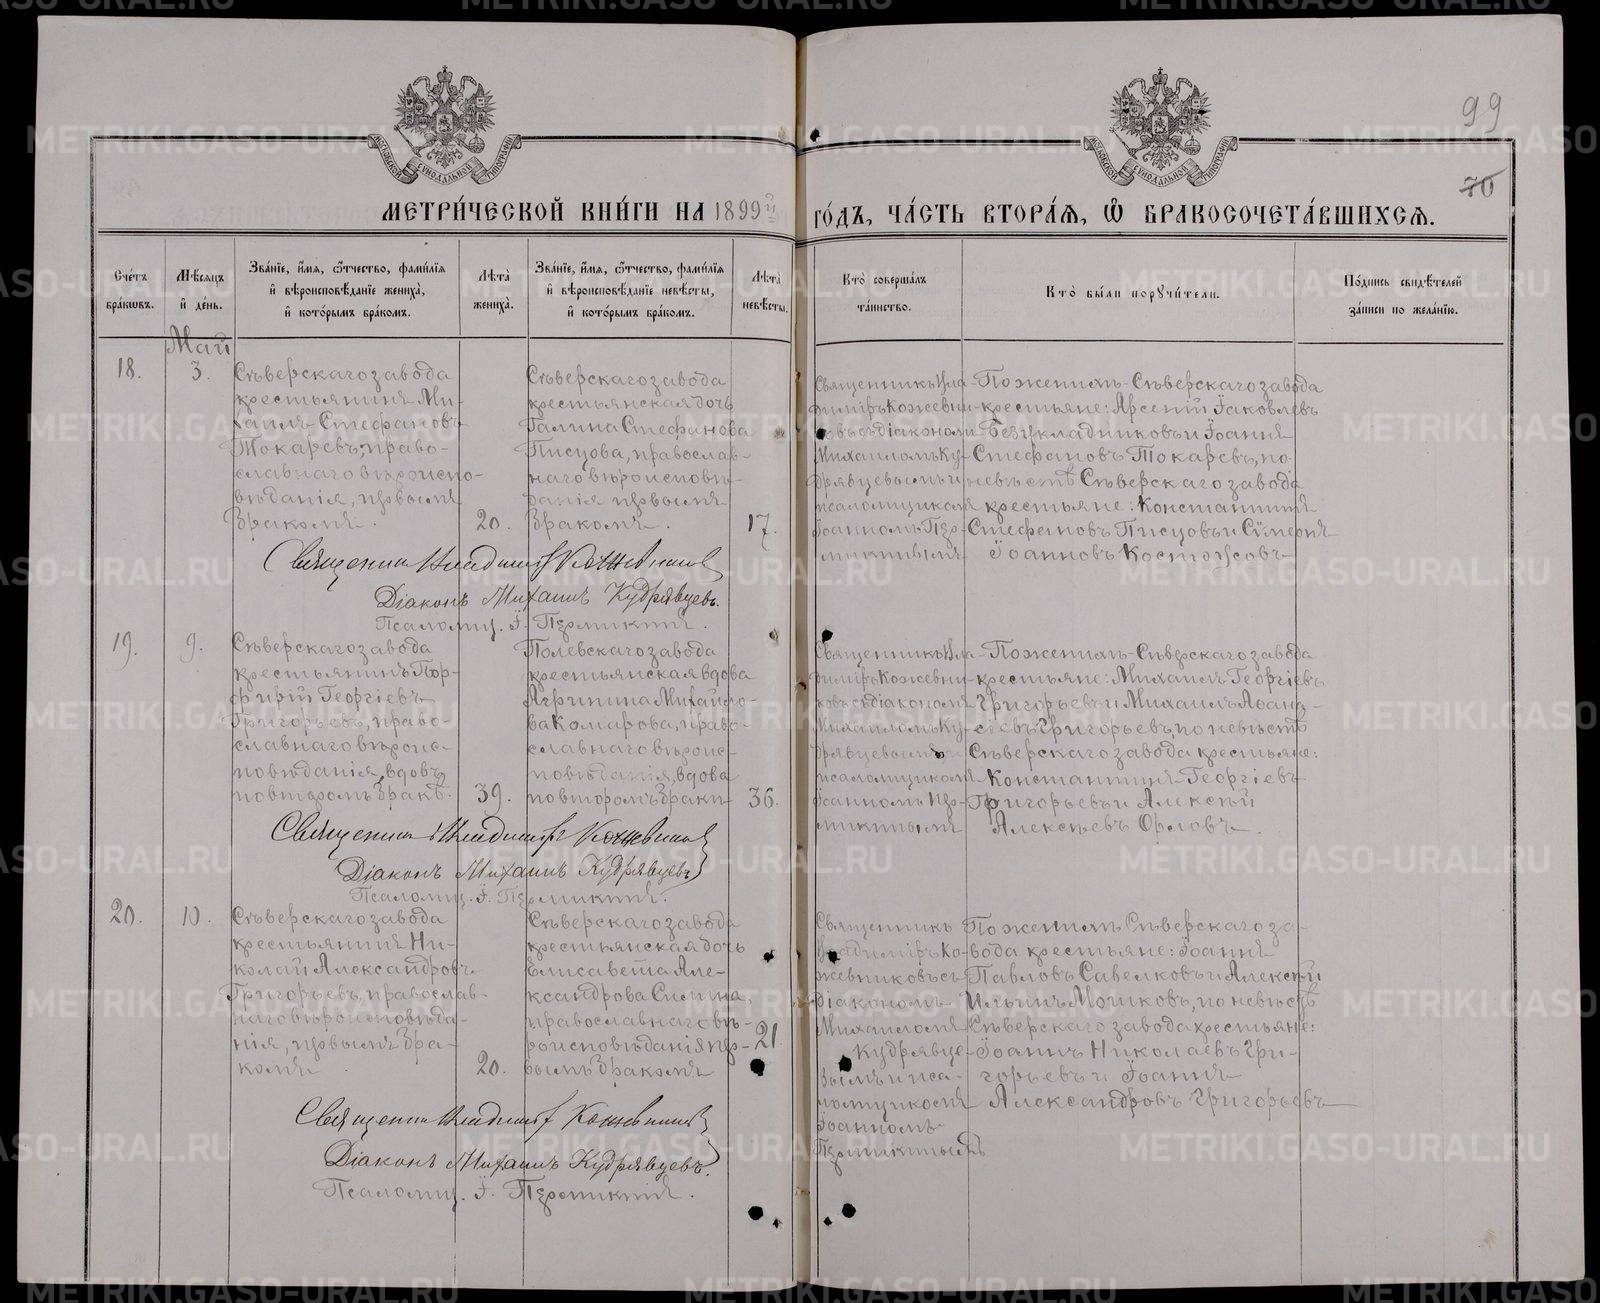 99
70
МОСКОВСКОЙ СѴНОДАЛЬНОЙ ТИПОГРАФІИ
МОСКОВСКОЙ СѴНОДАЛЬНОЙ ТИПОГРАФІИ
МЕТРИ́ЧЕСКОЙ КНИ́ГИ НА 1899й ГО́ДЪ, ЧА́СТЬ ВТОРА́Ѧ, Ѽ БРАКОСОЧЕТА́ВШИХСѦ.
Сче́тъ бра́кѡвъ.
Мѣ́сѧцъ и҆ де́нь.
Зва́нїе, и҆́мѧ, ѻ҆́тчество, фами́лїѧ и҆ вѣроисповѣ́данїе жениха̀, и҆ кото́рымъ бра́комъ.
Лѣ́та жениха̀.
Зва́нїе, и҆́мѧ, ѻ҆́тчество, фами́лїѧ и҆ вѣроисповѣ́данїе невѣ́сты, и҆ кото́рымъ бра́комъ.
Лѣ́та невѣ́сты.
Кто̀ соверша́лъ та́инство.
Кто̀ бы́ли порꙋчи́тели.
По́дпись свидѣ́телей за́писи по жела́нїю.
Май
18.
3.
Сѣверскаго завода
крестьянинъ Ми-
хаилъ Стефановъ
Токаревъ, право-
славнаго вѣроиспо-
вѣданія, первымъ
бракомъ.
20.
Сѣверскаго завода
крестьянская дочь
Галина Стефанова
Писцова, православ-
наго вѣроисповѣ-
данія первымъ
бракомъ.
17.
Священникъ Вла-
диміръ Кожевни-
ковъ съ діакономъ
Михаиломъ Ку-
дрявцевымъ и
псаломщикомъ
Іоанномъ Пер-
микинымъ
По женихѣ Сѣверскаго завода
крестьяне: Арсеній Іаковлевъ
Безукладниковъ и Іоаннъ
Стефановъ Токаревъ, по
невѣстѣ Сѣверскаго завода
крестьяне: Константинъ
Стефановъ Писцовъ и Сѵмеонъ
Іоанновъ Костоусовъ
Священникъ Владиміръ Кожевниковъ
Діаконъ Михаилъ Кудрявцевъ.
Псаломщ. І. Пермикинъ.
19.
9.
Сѣверскаго завода
крестьянинъ Пор-
фирій Георгіевъ
Григорьевъ, право-
славнаго вѣроис-
повѣданія, вдовъ
по второмъ бракѣ.
39.
Полевскаго завода
крестьянская вдова
Агрипина Михайло-
ва Комарова, право-
славнаго вѣроис-
повѣданія, вдова
по второмъ бракѣ
36.
Священникъ Вла-
диміръ Кожевни-
ковъ съ діакономъ
Михаиломъ Ку-
дрявцевымъ и
псаломщикомъ
Іоанномъ Пер-
микинымъ
По женихѣ Сѣверскаго завода
крестьяне: Михаилъ Георгіевъ
Григорьевъ и Михаилъ Аѳана-
сіевъ Григорьевъ, по невѣстѣ
Сѣверскаго завода крестьяне:
Константинъ Георгіевъ
Григорьевъ и Алексѣй
Алексѣевъ Орловъ.
Священникъ Владиміръ Кожевниковъ
Діаконъ Михаилъ Кудрявцевъ
Псаломщ. І. Пермикинъ.
20.
10.
Сѣверскаго завода
крестьянинъ Ни-
колай Александровъ
Григорьевъ, православ-
наго вѣроисповѣда-
нія, первымъ бра-
комъ
20.
Сѣверскаго завода
крестьянская дочь
Елисавета Але-
ксандрова Силина,
православнаго вѣ-
роисповѣданія пер-
вымъ бракомъ
21.
Священникъ
Владиміръ Ко-
жевниковъ съ
діакономъ
Михаиломъ
Кудрявце-
вымъ и пса-
ломщикомъ
Іоанномъ
Пермикинымъ
По женихѣ Сѣверскаго за-
вода крестьяне: Іоаннъ
Павловъ Савелковъ и Алексѣй
Ильинъ Мошковъ, по невѣстѣ
Сѣверскаго завода крестьяне:
Іоаннъ Николаевъ Гри-
горьевъ и Іоаннъ
Александровъ Григорьевъ
Священникъ Владиміръ Кожевниковъ
Діаконъ Михаилъ Кудрявцевъ.
Псаломщ. І. Пермикинъ.
METRIKI.GASO-URAL.RU